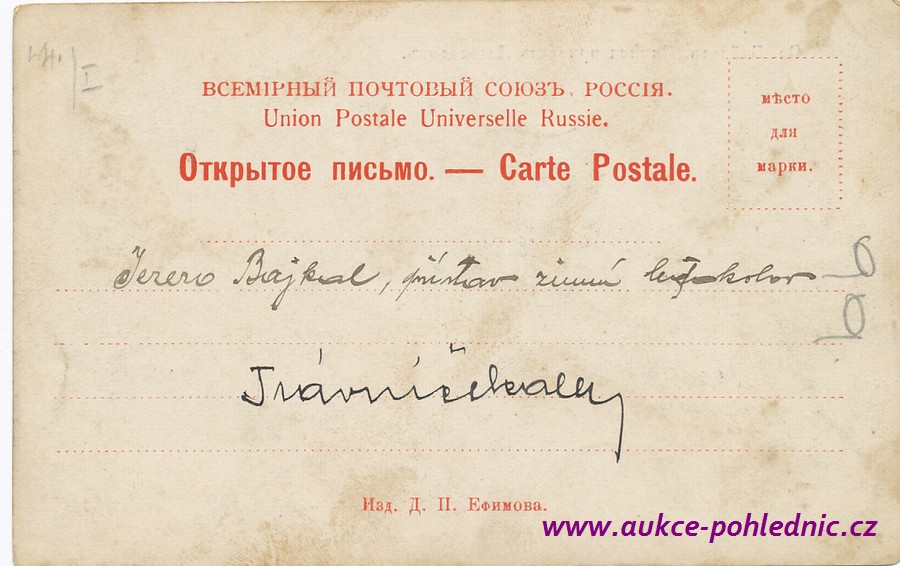 I
ВСЕМІРНЫЙ ПОЧТОВЫЙ СОЮЗЪ, РОССІЯ.
Union Postale Universelle Russie.
Открытое письмо. — Carte Postale.
мѣсто
для
марки.
Jezero Bajkal, přístav zimní
Trávníčkovy
Изд. Д. П. Ефимова.
www.aukce-pohlednic.cz